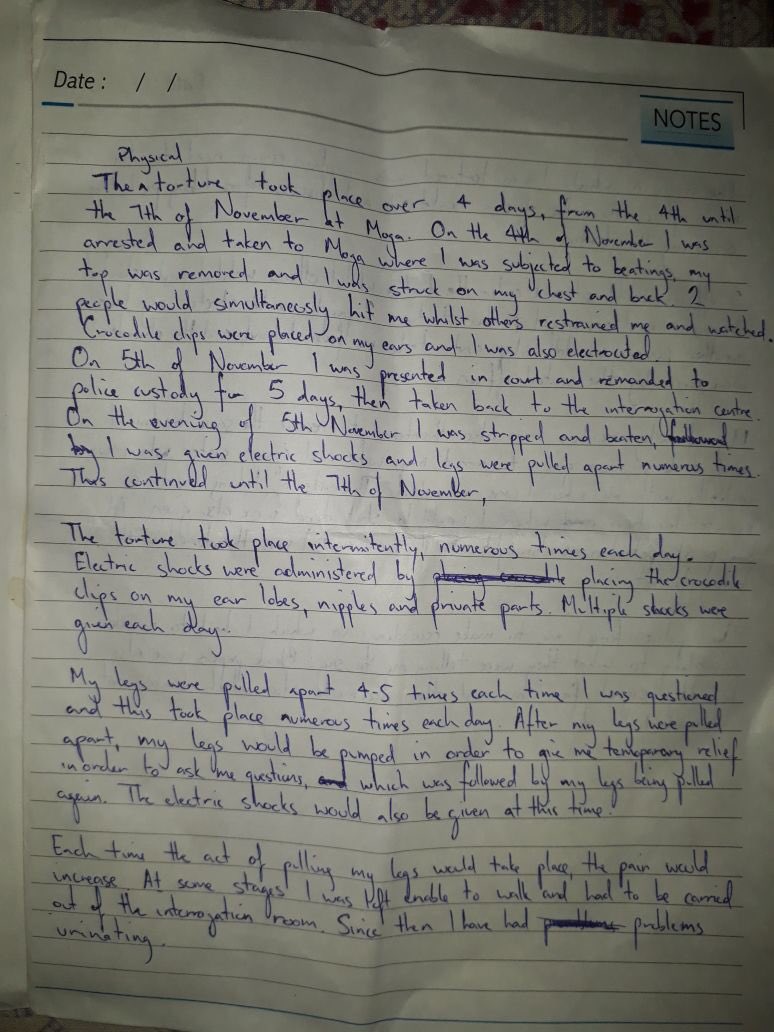 Date : / /
NOTES
Physical
The torture took place over 4 days, from the 4th until
the 7th of November at Moga. On the 4th of November I was
arrested and taken to Moga where I was subjected to beatings, my
top was removed and I was struck on my chest and back. 2
people would simultaneously hit me whilst others restrained me and watched.
Crocodile clips were placed on my ears and I was also electrocuted.
On 5th of November I was presented in court and remanded to
police custody for 5 days, then taken back to the interrogation centre.
On the evening of 5th November I was stripped and beaten, followed
by I was given electric shocks and legs were pulled apart numerous times.
This continued until the 7th of November,
The torture took place intermitently, numerous times each day.
Electric shocks were administered by placing the crocodile
clips on my ear lobes, nipples and private parts. Multiple shocks were
given each day.
My legs were pulled apart 4-5 times each time I was questioned
and this took place numerous times each day. After my legs were pulled
apart, my legs would be pumped in order to give me temporary relief
in order to ask me questions, and which was followed by my legs being pulled
again. The electric shocks would also be given at this time.
Each time the act of pulling my legs would take place, the pain would
increase. At some stages I was left unable to walk and had to be carried
out of the interrogation room. Since then I have had problems problems
urinating.